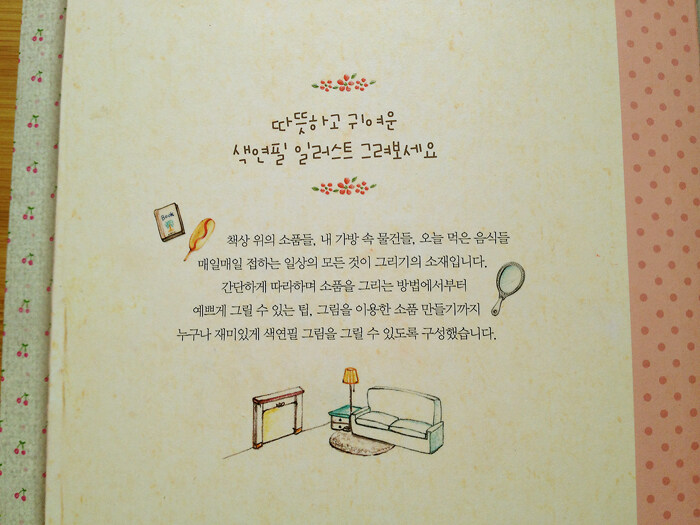 따뜻하고 귀여운
색연필 일러스트 그려보세요
Book
책상 위의 소품들, 내 가방 속 물건들, 오늘 먹은 음식들
매일매일 접하는 일상의 모든 것이 그리기의 소재입니다.
간단하게 따라하며 소품을 그리는 방법에서부터
예쁘게 그릴 수 있는 팁, 그림을 이용한 소품 만들기까지
누구나 재미있게 색연필 그림을 그릴 수 있도록 구성했습니다.